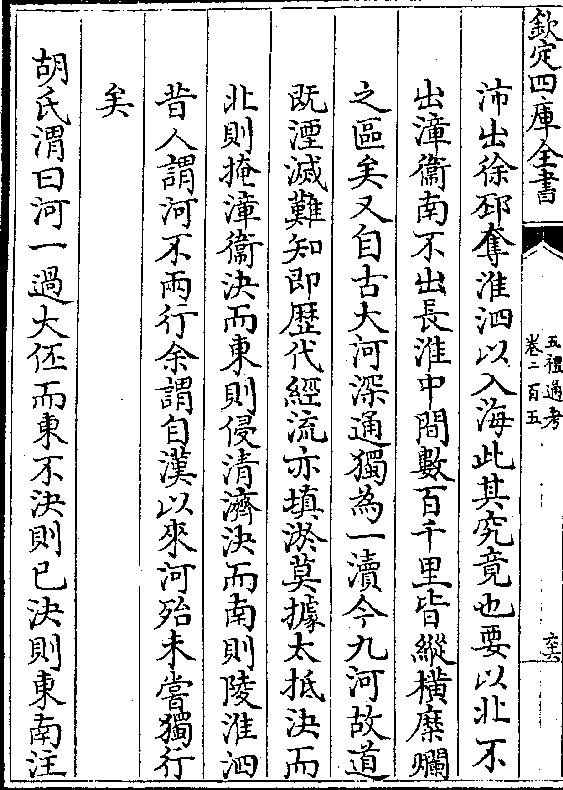 欽定四庫全書
五禮通考
卷二百五
六
沛出徐邳奪淮泗以入海此其究竟也要以北不
出漳衞南不出長淮中間數百千里皆縱橫糜爛
之區矣又自古大河深通獨為一瀆今九河故道
既湮滅難知即歴代經流亦填淤莫據太抵決而
北則掩漳衞決而東則侵清濟決而南則陵淮泗
昔人謂河不兩行余謂自漢以來河殆未嘗獨行
矣
胡氏渭曰河一過大伾而東不決則已決則東南注